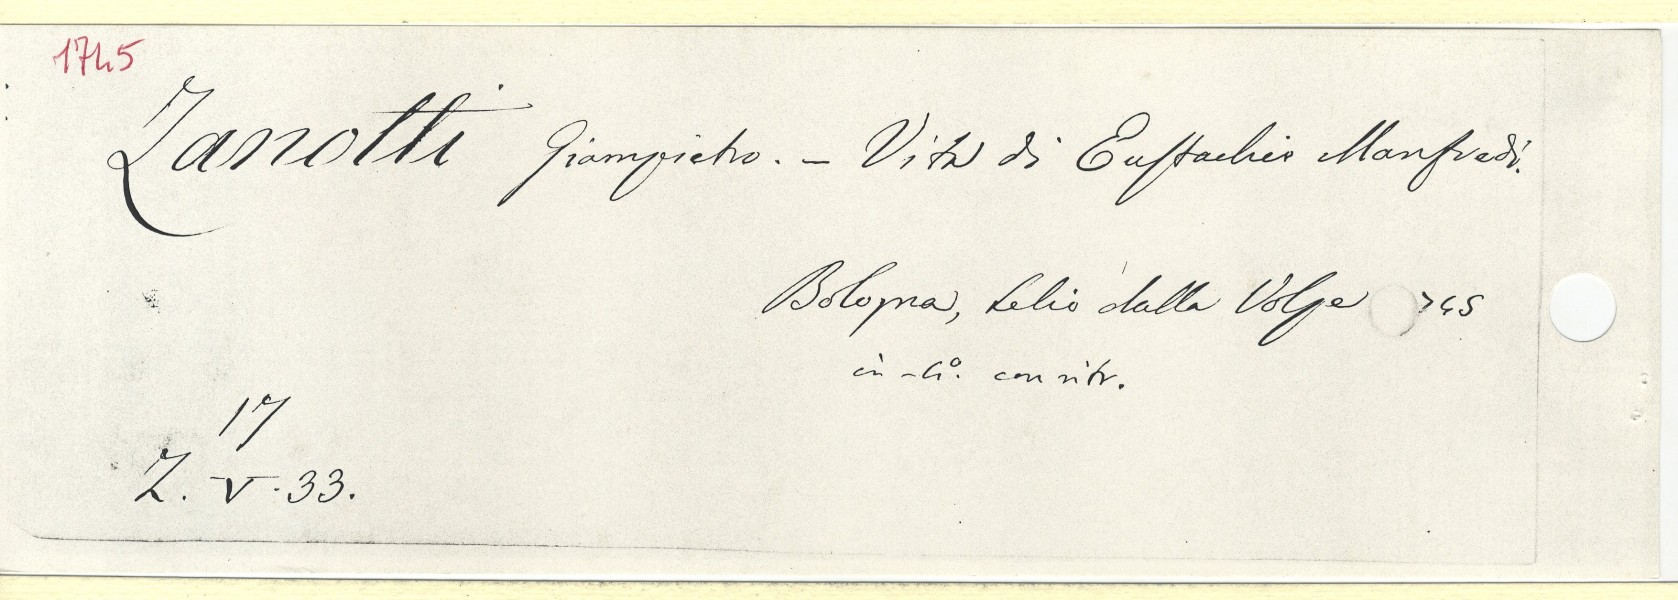 1745
Zanotti Giampietro. – Vita di Eustachio Manfredi.
Bologna, Lelio dalla Volpe 745
in-4º. con ritr.
17
Z. V. 33.